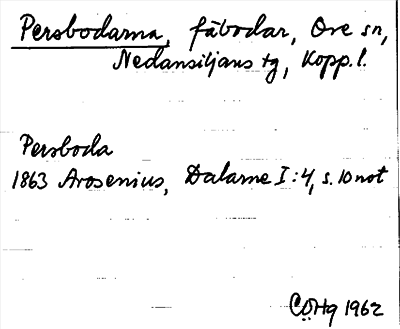 Persbodarna, fäbodar, Ore sn,
Nedansiljans tg, Kopp. l.
Persboda
1863 Arosenius, Dalarne I:4, s. 10 not
CÖHg 1962